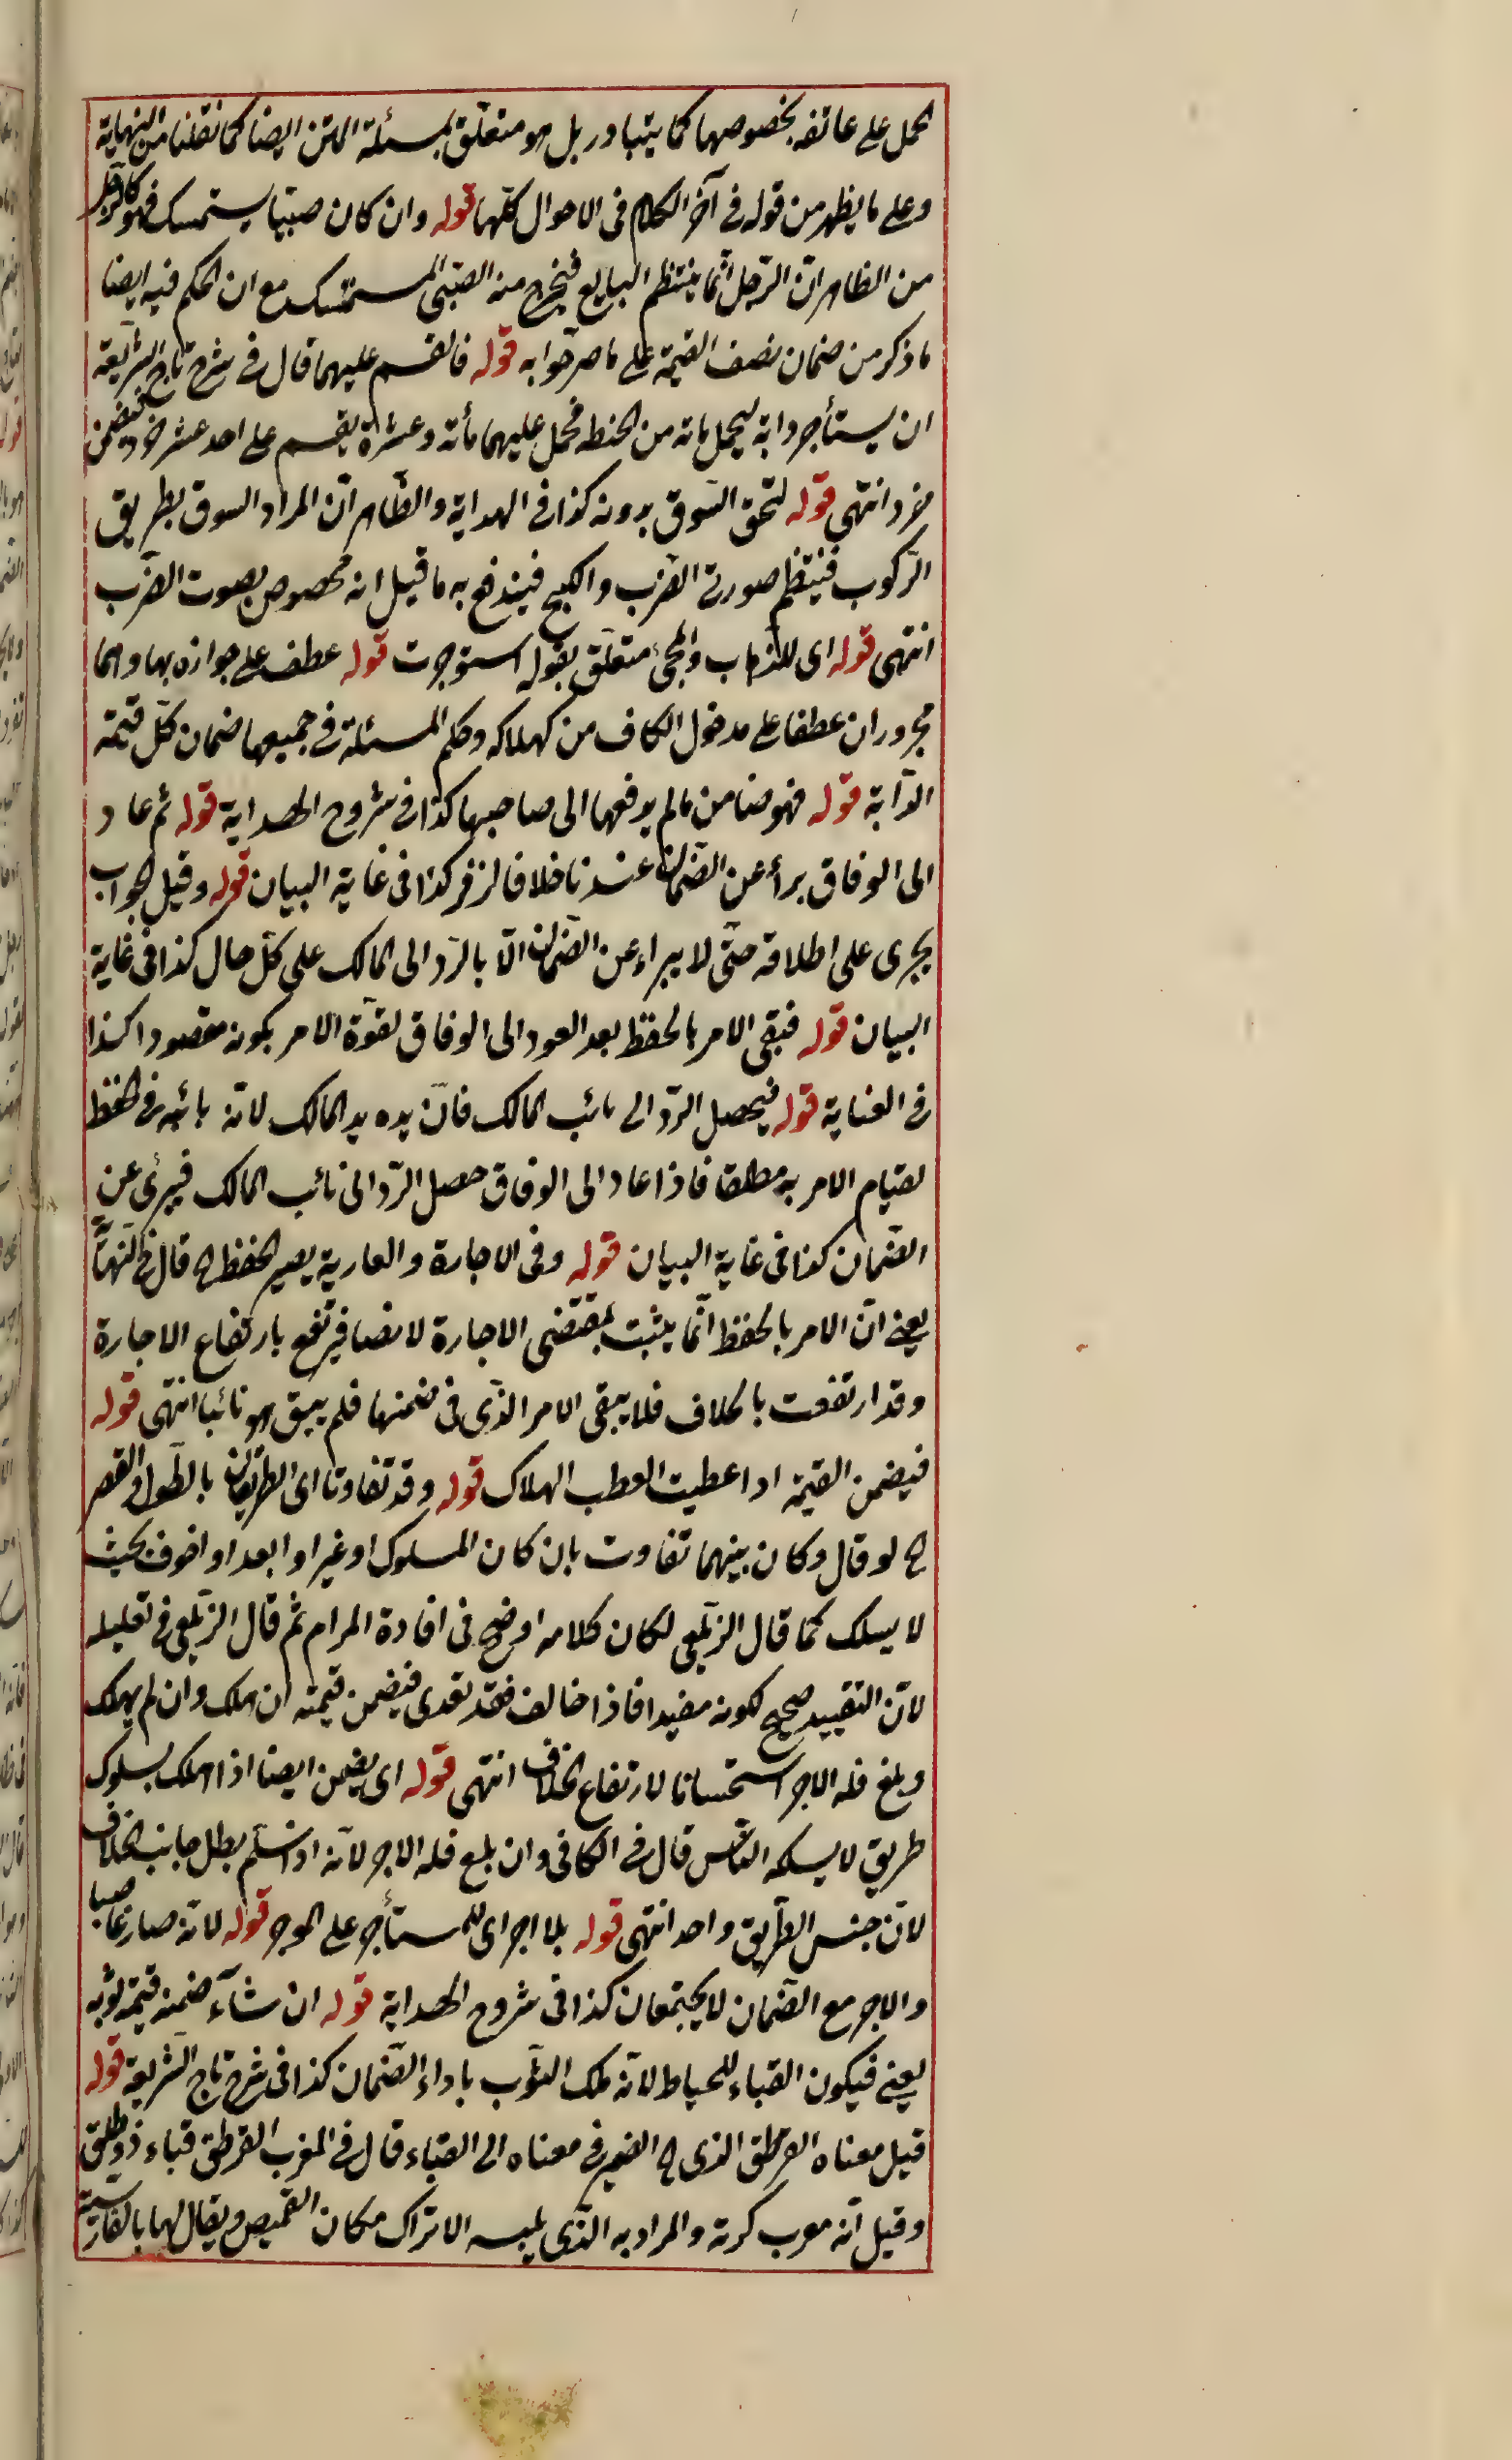 الحمل على عاتقه بخصوصها كما يتبادر بل هو متعلق بمسئلة المتن ايضا كما نقلنا من النهاية
وعلى ما يظهر من قوله فى آخر الكلام فى الاحوال كلها قوله وان كان صبيا يستمسك فهو كالرجل
من الظاهر ان الرجل انما ينتظم البالغ فيخرج منه الصبى المستمسك مع ان الحكم فيه ايضا
ما ذكر من ضمان نصف القيمة على ما صرحوا به قوله فانقسم عليهما قال فى شرح تاج الشريعة
ان يستأجر دابة ليحمل مائة من الحنطه فحمل عليهما مأته وعشرة يقسم على احد عشر جزء ويضمن
جزء انتهى قوله لتحقق السوق بدونه كذا فى الهداية والظاهر ان المراد السوق بطريق
الركوب فينتظم صورتى الضرب والكبح فيندفع به ما قيل انه مخصوص بصوت الضرب
انتهى قوله اى للذهاب والمجئ متعلق بقوله استوجرت قوله عطف على جوازه بها وهما
مجروران عطفا على مدخول الكاف من كهلاكه وحكم المسئلة فى جميعها ضمان كل قيمة
الدابة قوله فهو ضامن ما لم يدفعها الى صاحبها كذا فى شروح الهداية قوله ثم عاد
الى الوفاق برأ عن الضمان عندنا خلافا لزفر كذا فى غاية البيان قوله وقيل الجواب
يجرى على اطلاقه حتى لا يبراء عن الضمان الا بالرد الى المالك على كل حال كذا فى غاية
البيان قوله فبقى الامر بالحفظ بعد العود الى الوفاق لقوة الامر بكونه مقصودا كذا
فى العناية قوله فيحصل الرد الى نائب المالك فان يده يد المالك لانه نائبه فى الحفظ
لقيام الامر به مطلقا فاذا عاد الى الوفاق حصل الرد الى نائب المالك فيبرئ عن
الضمان كذا فى غاية البيان قوله وفى الاجارة والعارية يصير الحفظ الخ قال فى النهاية
يعنى ان الامر بالحفظ انما يثبت بمقتضى الاجارة لا نصا فيرتفع بارتفاع الاجارة
وقد ارتفعت بالخلاف فلا يبقى الامر الذى فى ضمنها فلم يبق هو نائبا انتهى قوله
فيضمن القيمة اذا عطبت العطب الهلاك قوله وقد تفاوتا اى الطريقان بالطول والقصر
الخ لو قال وكان بينهما تفاوت بان كان المسلوك اوعر او ابعد او اخوف بحيث
لا يسلك كما قال الزيلعى لكان كلامه اوضح فى افادة المرام ثم قال الزيلعى فى تعليله
لان التقييد صحيح لكونه مفيدا فاذا خالف فقد تعدى فيضمن قيمته ان هلك وان لم يهلك
وبلغ فله الاجر استحسانا لارتفاع الخلاف انتهى قوله اى يضمن ايضا اذا هلك بسلوك
طريق لا يسلكه الناس قال فى الكافى وان بلغ فله الاجر لانه اذا سلم بطل جانب الخلاف
لان جنس الطريق واحد انتهى قوله بلا اجر اى للمستأجر على الموجر قوله لانه صار غاصبا
والاجر مع الضمان لا يجتمعان كذا فى شروح الهداية قوله ان شآء ضمنه قيمة ثوبه
يعنى فيكون القباء للخياط لانه ملك الثوب باداء الضمان كذا فى شرح تاج الشريعة قوله
قيل معناه القرطق الذى الخ الضمير فى معناه الى القباء قال فى المغرب القرطق قباء ذو طاق
وقيل انه معرب كرته والمراد به الذى يلبسه الاتراك مكان القميص ويقال لها بالفارسية